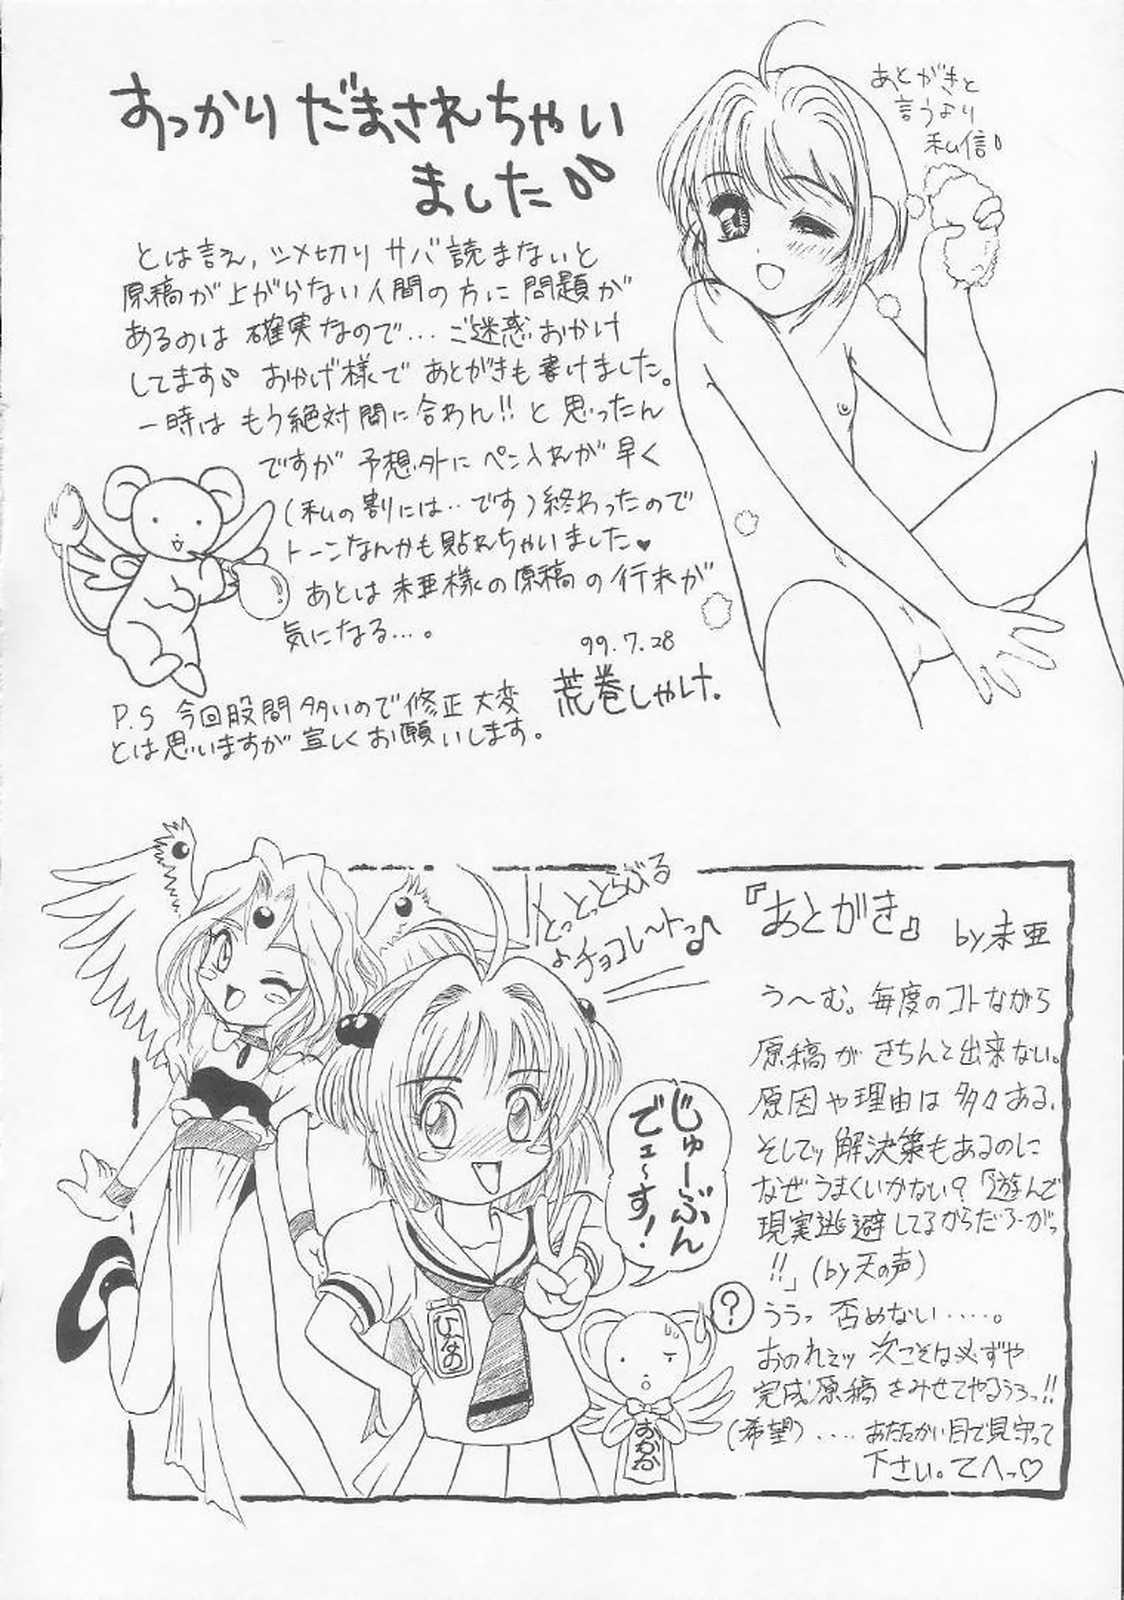 すっかりだまされちゃい
ました
あとがきと
言うより
私信
とは言え、〆切りサバ読まないと
原稿が上がらない人間の方に問題が
あるのは確実なので…ご迷惑おかけ
してます おかげ様であとがきも書けました。
一時はもう絶対間に合わん!!と思ったん
ですが予想外にペン入れが早く
(私の割には‥です)終わったので
トーンなんかも貼れちゃいました♥
あとは未亜様の原稿の行末が
気になる…。
99.7.28
荒巻しゃけ。
P.S 今回股間多いので修正大変
とは思いますが宜しくお願いします。
『あとがき』 by未亜
とっとっとらぶる
♪チョコレート♪
じゅーぶん
でェ〜す!
ひなの
?
おかか
う〜む。毎度のコトながら
原稿がきちんと出来ない。
原因や理由は多々ある、
そしてッ解決策もあるのに
なぜうまくいかない?「遊んで
現実逃避してるからだろーがっ
!!」(by天の声)
ううっ否めない‥‥‥。
おのれぇッ次こそは必ずや
完成原稿をみせてやるうろっ!!
(希望)‥‥あたたかい目で見守って
下さい。てへっ♡